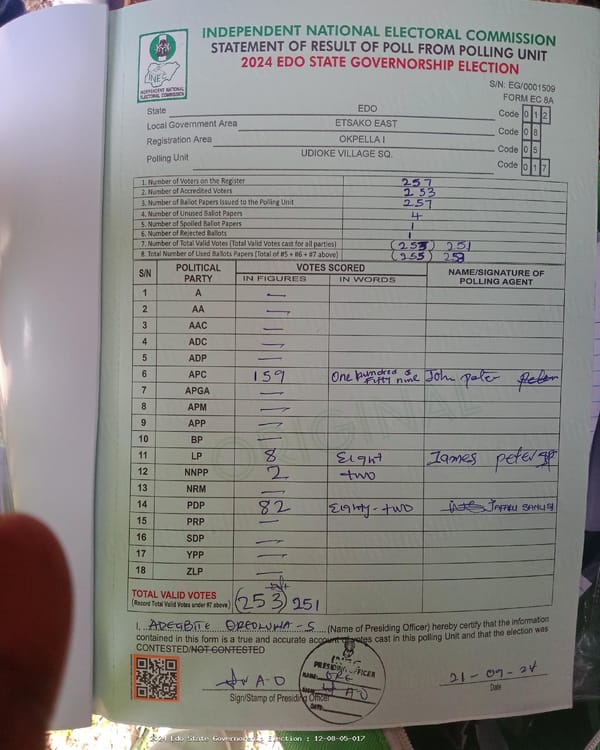 INDEPENDENT NATIONAL ELECTORAL COMMISSION
STATEMENT OF RESULT OF POLL FROM POLLING UNIT
2024 EDO STATE GOVERNORSHIP ELECTION
INEC
INDEPENDENT NATIONAL ELECTORAL COMMISSION
S/N: EG/0001509
FORM EC 8A
State EDO Code 0 1 2
Local Government Area ETSAKO EAST Code 0 8
Registration Area OKPELLA I Code 0 5
Polling Unit UDIOKE VILLAGE SQ. Code 0 1 7
1. Number of Voters on the Register 257
2. Number of Accredited Voters 253
3. Number of Ballot Papers Issued to the Polling Unit 257
4. Number of Unused Ballot Papers 4
5. Number of Spoiled Ballot Papers 1
6. Number of Rejected Ballots 1
7. Number of Total Valid Votes (Total Valid Votes cast for all parties) (253) 251
8. Total Number of Used Ballots Papers (Total of #5 + #6 + #7 above) (255) 253
S/N POLITICAL PARTY VOTES SCORED NAME/SIGNATURE OF POLLING AGENT
IN FIGURES IN WORDS
1 A —
2 AA —
3 AAC —
4 ADC —
5 ADP —
6 APC 159 One hundred & fifty nine John peter Peter
7 APGA —
8 APM —
9 APP —
10 BP —
11 LP 8 Eight James peter
12 NNPP 2 two
13 NRM —
14 PDP 82 Eighty-two JAFARU SANUSI
15 PRP —
16 SDP —
17 YPP —
18 ZLP —
TOTAL VALID VOTES (253) 251
(Record Total Valid Votes under #7 above)
I, ADEGBITE OREOLUWA-S (Name of Presiding Officer) hereby certify that the information
contained in this form is a true and accurate account of votes cast in this polling Unit and that the election was
CONTESTED/NOT CONTESTED
INEC
PRESIDING OFFICER
NAME: ORE
SIGN: A-O
DATE:
A-O
Sign/Stamp of Presiding Officer
21-09-24
Date
2024 Edo State Governorship Election : 12-08-05-017
ORIGINAL